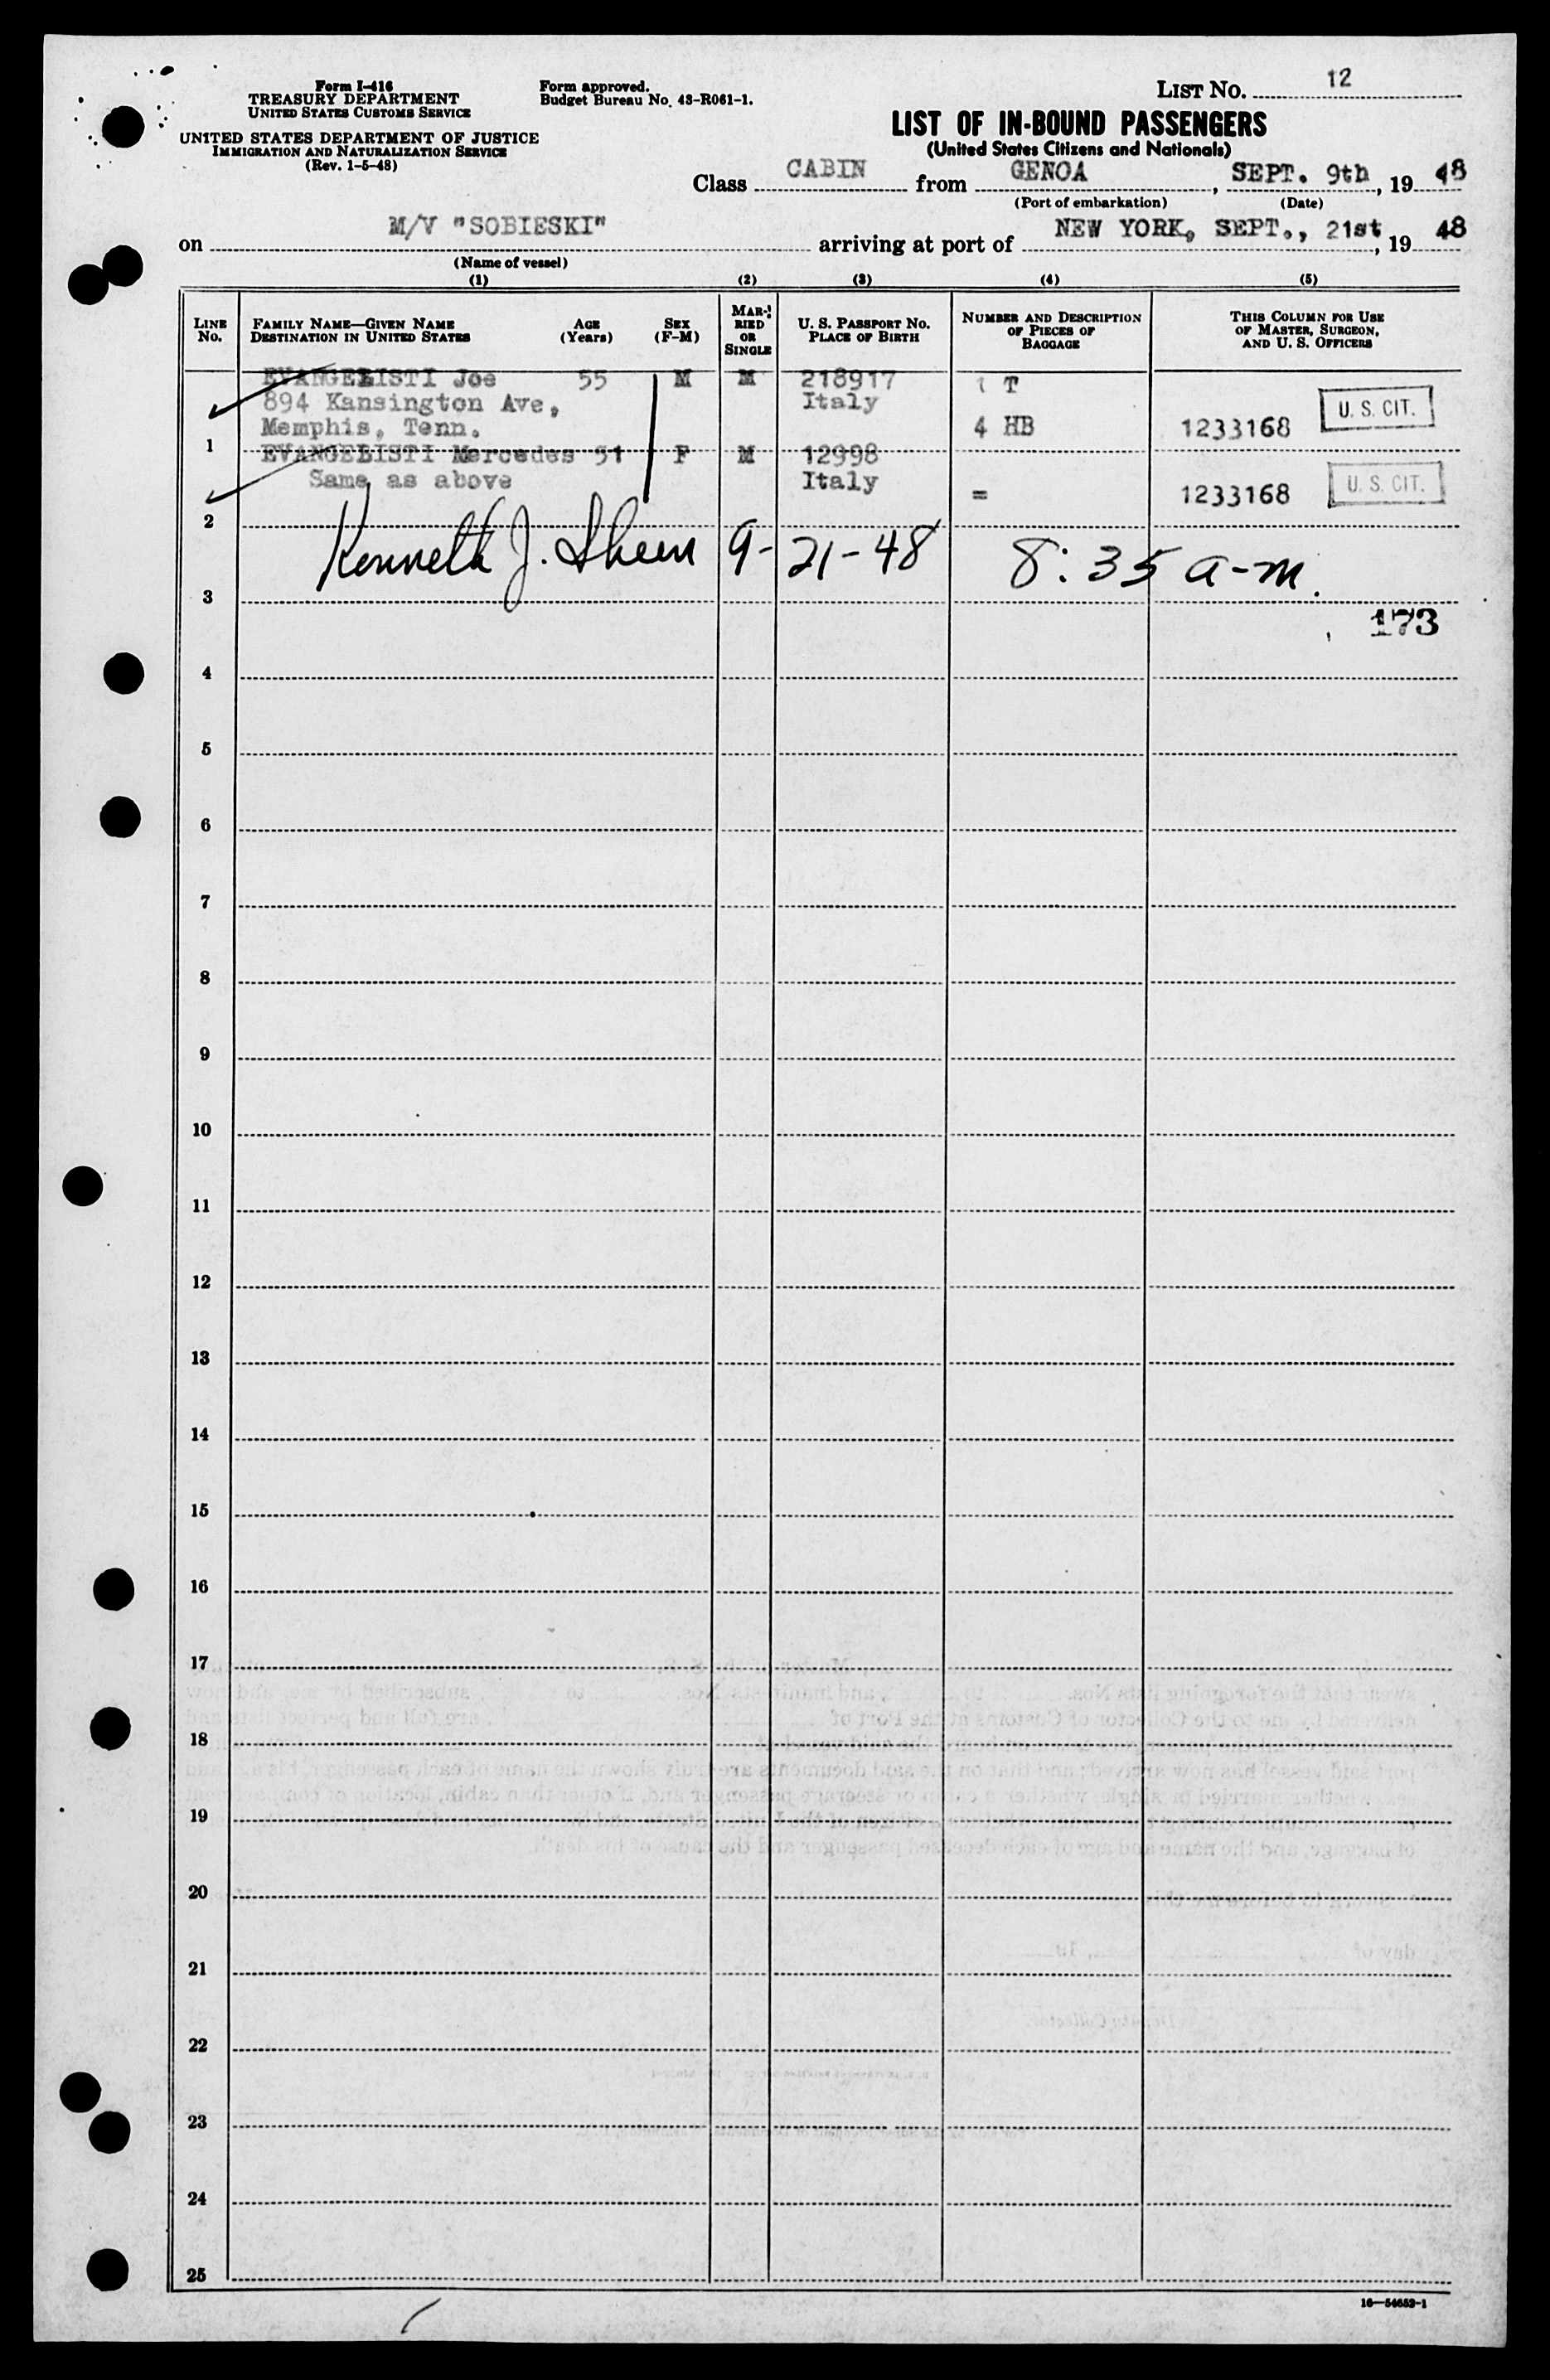 Form I-416
TREASURY DEPARTMENT
UNITED STATES CUSTOMS SERVICE
UNITED STATES DEPARTMENT OF JUSTICE
IMMIGRATION AND NATURALIZATION SERVICE
(Rev. 1-5-48)
Form approved.
Budget Bureau No. 43-R061-1.
LIST NO. 12
LIST OF IN-BOUND PASSENGERS
(United States Citizens and Nationals)
Class CABIN from GENOA, SEPT. 9th, 19 48
(Port of embarkation) (Date)
on M/V "SOBIESKI" arriving at port of NEW YORK, SEPT., 21st, 19 48
(Name of vessel)
(1) (2) (3) (4) (5)
LINE NO. FAMILY NAME—GIVEN NAME DESTINATION IN UNITED STATES AGE (Years) SEX (F-M) MARRIED OR SINGLE U. S. PASSPORT NO. PLACE OF BIRTH NUMBER AND DESCRIPTION OF PIECES OF BAGGAGE THIS COLUMN FOR USE OF MASTER, SURGEON, AND U. S. OFFICERS
EVANGELISTI Joe 55 M M 218917 1 T
894 Kansington Ave, Italy
Memphis, Tenn. 4 HB 1233168 U. S. CIT.
1
EVANGELISTI Mercedes 51 F M 12998
Same as above Italy = 1233168 U. S. CIT.
2
Kenneth J. Sheen 9-21-48 8:35 a-m.
3
173
4
5
6
7
8
9
10
11
12
13
14
15
16
17
18
19
20
21
22
23
24
25
16—54652-1